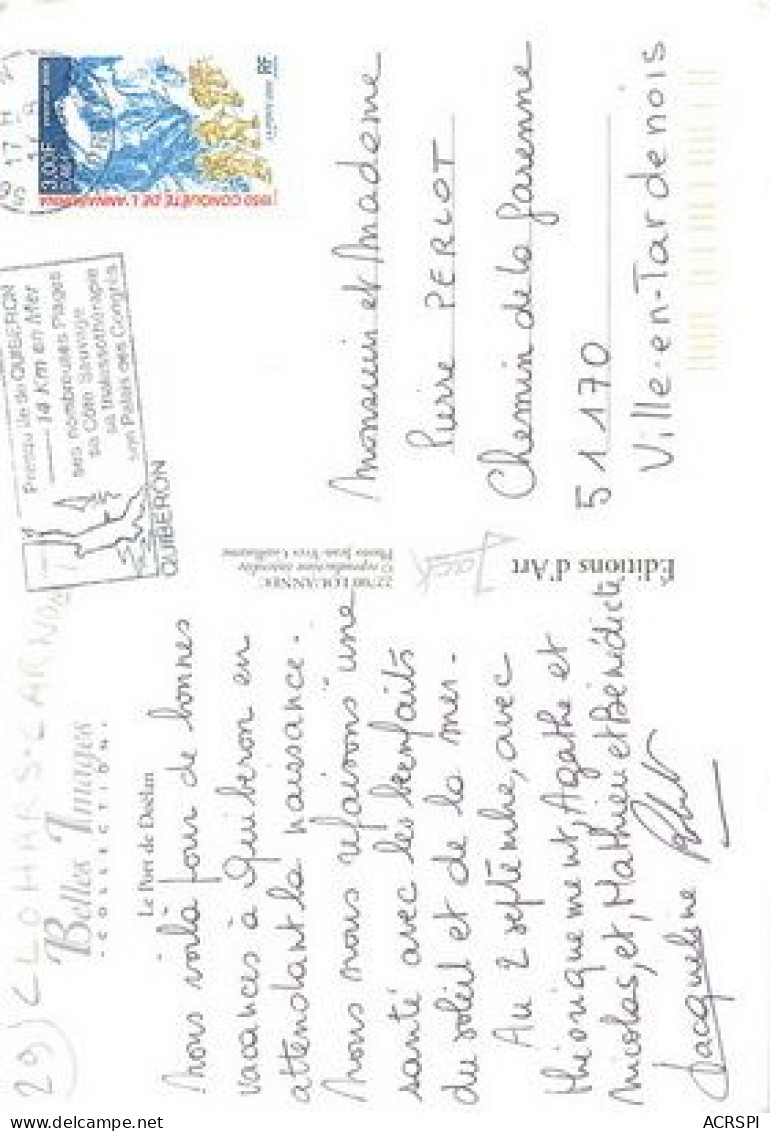 29) CLOHARS-CARNOËT
Belles Images
- COLLECTION -
Le Port de Doëlan
Nous voilà pour de bonnes
vacances à Quiberon en
attendant la naissance.
Nous nous refaisons une
santé avec les bienfaits
du soleil et de la mer.
Au 2 septembre, avec
théoriquement, Agathe et
Nicolas, et, Mathieu et Bénédicte
Jacqueline
Éditions d'Art
Jack
22700 LOUANNEC
© reproduction interdite
Photo Jean-Yves Guillaume
Presqu'île de QUIBERON
14 Km en Mer
ses nombreuses Plages
sa Côte Sauvage
sa thalassothérapie
son Palais des Congrès
QUIBERON
17 H
3,00F
RF
LA POSTE 2000
1950 CONQUÊTE DE L'ANNAPURNA
Monsieur et Madame
Pierre PERLOT
Chemin de la Garenne
51170
Ville-en-Tardenois
ACRSPI